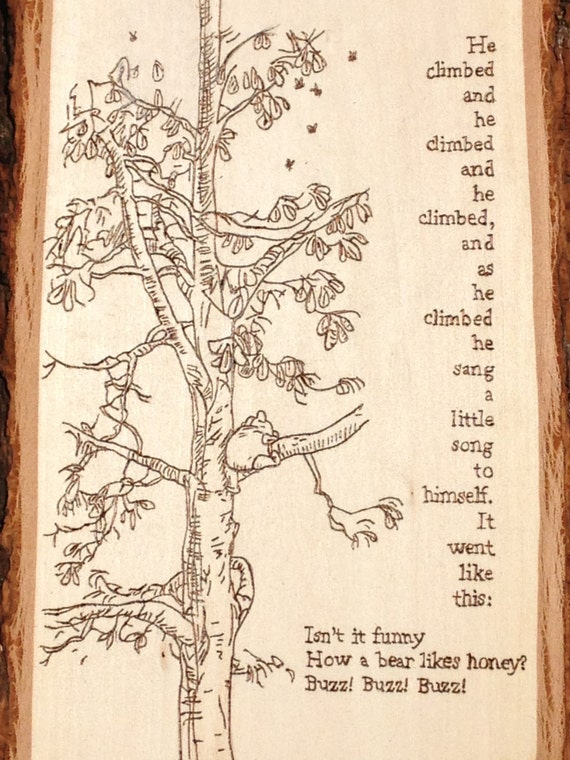 He
climbed
and
he
climbed
and
he
climbed,
and
as
he
climbed
he
sang
a
little
song
to
himself.
It
went
like
this:
Isn't it funny
How a bear likes honey?
Buzz! Buzz! Buzz!